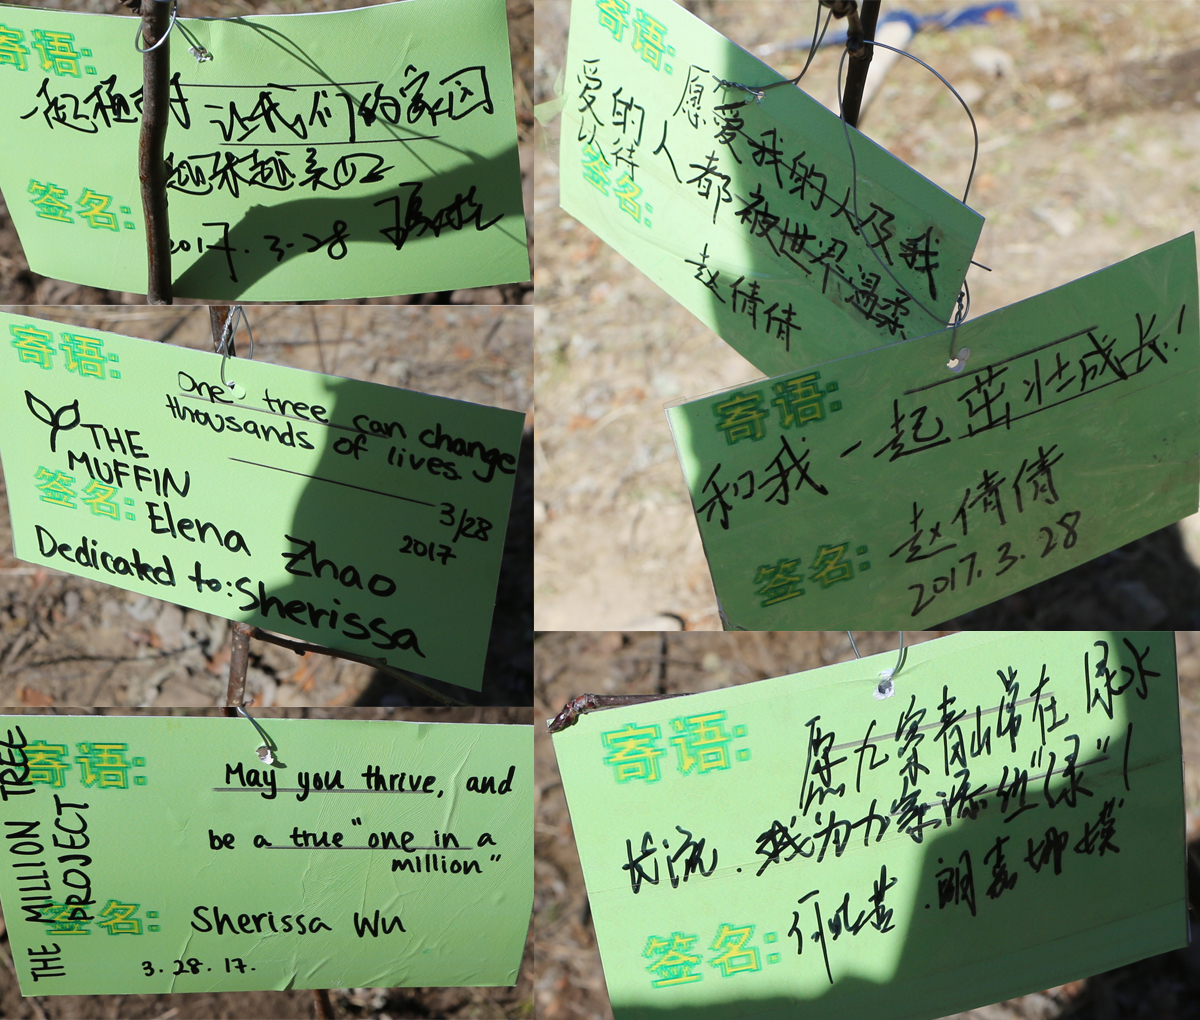 寄语:
一起植树 让我们的家园
越来越美叫
签名:
2017.3.28
寄语:
愿爱我的人及我
爱的人都被世界温柔
以待
签名:
赵倩倩
寄语:
One tree can change
thousands of lives.
THE
MUFFIN
3/28
2017
签名:
Elena Zhao
Dedicated to: Sherissa
寄语:
和我一起茁壮成长!
签名:
赵倩倩
2017.3.28
THE MILLION TREE
PROJECT
寄语:
May you thrive, and
be a true "one in a
million"
签名:
Sherissa Wu
3.28.17.
寄语:
愿九案青山常在 绿水
长流.我为九案添丝"绿"!
签名: